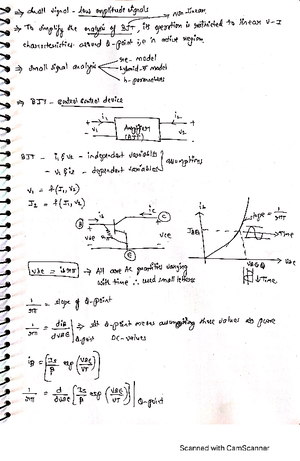 ⇒ small signal - low amplitude signals
→ non linear
⇒ To simplify the analysis of BJT, its operation is restricted to linear V-I
characteristics around Q-point i.e in active region.
⇒ small signal analysis
re - model
hybrid-π model
h-parameters
⇒ BJT - control device
i1 i2
V1 Amplifier (BJT) V2
BJT - i1 & v2 - independent variables
- v1 & i2 - dependent variables
assumptions
V1 = f(I1, V2)
I2 = f(I1, V2)
B ic C
vbe vce
E
ib
slope = 1/rπ
IBQ
Time
VBEQ
Time
vbe = ib rπ → All are AC quantities varying
with time ∴ used small letters
1/rπ = slope of Q-point
1/rπ = diB/dvBE | Q-point ⇒ at Q-point means assumpting these values as pure
DC-values
iB = [Is/β exp(VBE/VT)]
1/rπ = d/dvBE [Is/β exp(VBE/VT)] | Q-point
Scanned with CamScanner